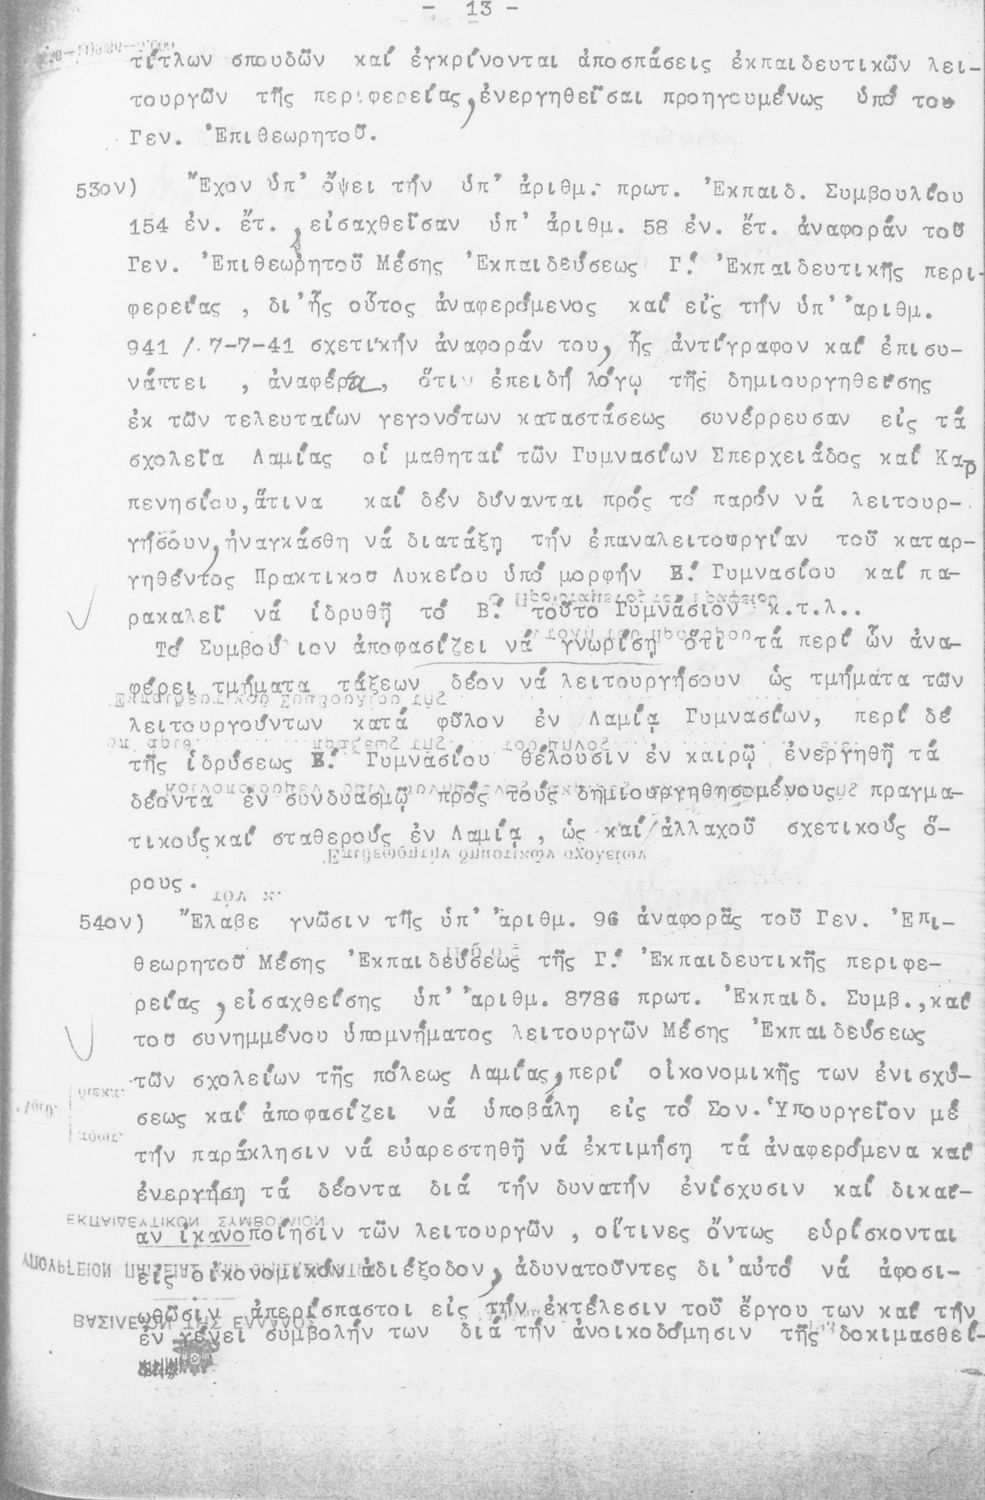 - 13 -
τίτλων σπουδῶν καί ἐγκρίνονται ἀποσπάσεις ἐκπαιδευτικῶν λει-
τουργῶν τῆς περιφερείας, ἐνεργηθεῖσαι προηγουμένως ὑπό του
Γεν. Ἐπιθεωρητοῦ.
53ον) Ἔχον ὑπ' ὄψει τήν ὑπ' ἀριθμ. πρωτ. Ἐκπαιδ. Συμβουλίου
154 ἐν. ἔτ., εἰσαχθεῖσαν ὑπ' ἀριθμ. 58 ἐν. ἔτ. ἀναφοράν τοῦ
Γεν. Ἐπιθεωρητοῦ Μέσης Ἐκπαιδεύσεως Γ.' Ἐκπαιδευτικῆς περι-
φερείας , δι' ἧς οὗτος ἀναφερόμενος καί εἰς τήν ὑπ' ἀριθμ.
941 /. 7-7-41 σχετικήν ἀναφοράν του, ἧς ἀντίγραφον καί ἐπισυ-
νάπτει , ἀναφέρει, ὅτι ἐπειδή λόγῳ τῆς δημιουργηθείσης
ἐκ τῶν τελευταίων γεγονότων καταστάσεως συνέρρευσαν εἰς τά
σχολεῖα Λαμίας οἱ μαθηταί τῶν Γυμνασίων Σπερχειάδος καί Καρ
πενησίου, ἅτινα καί δέν δύνανται πρός τό παρόν νά λειτουρ-
γήσουν, ἠναγκάσθη νά διατάξῃ τήν ἐπαναλειτουργίαν τοῦ καταρ-
γηθέντος Πρακτικου Λυκείου ὑπό μορφήν Β.' Γυμνασίου καί πα-
ρακαλεῖ νά ἱδρυθῇ τό Β.' τοῦτο Γυμνάσιον κ.τ.λ..
Τό Συμβούλιον ἀποφασίζει νά γνωρίσῃ ὅτι τά περί ὧν ἀνα-
φέρει τμήματα τάξεων δέον νά λειτουργήσουν ὡς τμήματα τῶν
λειτουργούντων κατά φῦλον ἐν Λαμίᾳ Γυμνασίων, περί δέ
τῆς ἱδρύσεως Β.' Γυμνασίου θέλουσιν ἐν καιρῷ ἐνεργηθῇ τά
δέοντα ἐν συνδυασμῷ πρός τούς δημιουργηθησομένους πραγμα-
τικούς καί σταθερούς ἐν Λαμίᾳ , ὡς καί ἀλλαχοῦ σχετικούς ὅ-
ρους.
54ον) Ἔλαβε γνῶσιν τῆς ὑπ' ἀριθμ. 96 ἀναφορᾶς τοῦ Γεν. Ἐπι-
θεωρητοῦ Μέσης Ἐκπαιδεύσεως τῆς Γ.' Ἐκπαιδευτικῆς περιφε-
ρείας, εἰσαχθείσης ὑπ' ἀριθμ. 8786 πρωτ. Ἐκπαιδ. Συμβ., καί
του συνημμένου ὑπομνήματος λειτουργῶν Μέσης Ἐκπαιδεύσεως
τῶν σχολείων τῆς πόλεως Λαμίας, περί οἰκονομικῆς των ἐνισχύ-
σεως καί ἀποφασίζει νά ὑποβάλῃ εἰς τό Σον. Ὑπουργεῖον μέ
τήν παράκλησιν νά εὐαρεστηθῇ νά ἐκτιμήσῃ τά ἀναφερόμενα καί
ἐνεργήσῃ τά δέοντα διά τήν δυνατήν ἐνίσχυσιν καί δικαί-
αν ἱκανοποίησιν τῶν λειτουργῶν , οἵτινες ὄντως εὑρίσκονται
εἰς οἰκονομικόν ἀδιέξοδον, ἀδυνατοῦντες δι' αὐτό νά ἀφοσι-
ωθῶσιν ἀπερίσπαστοι εἰς τήν ἐκτέλεσιν τοῦ ἔργου των καί τήν
ἐν γένει συμβολήν των διά τήν ἀνοικοδόμησιν τῆς δοκιμασθεί-